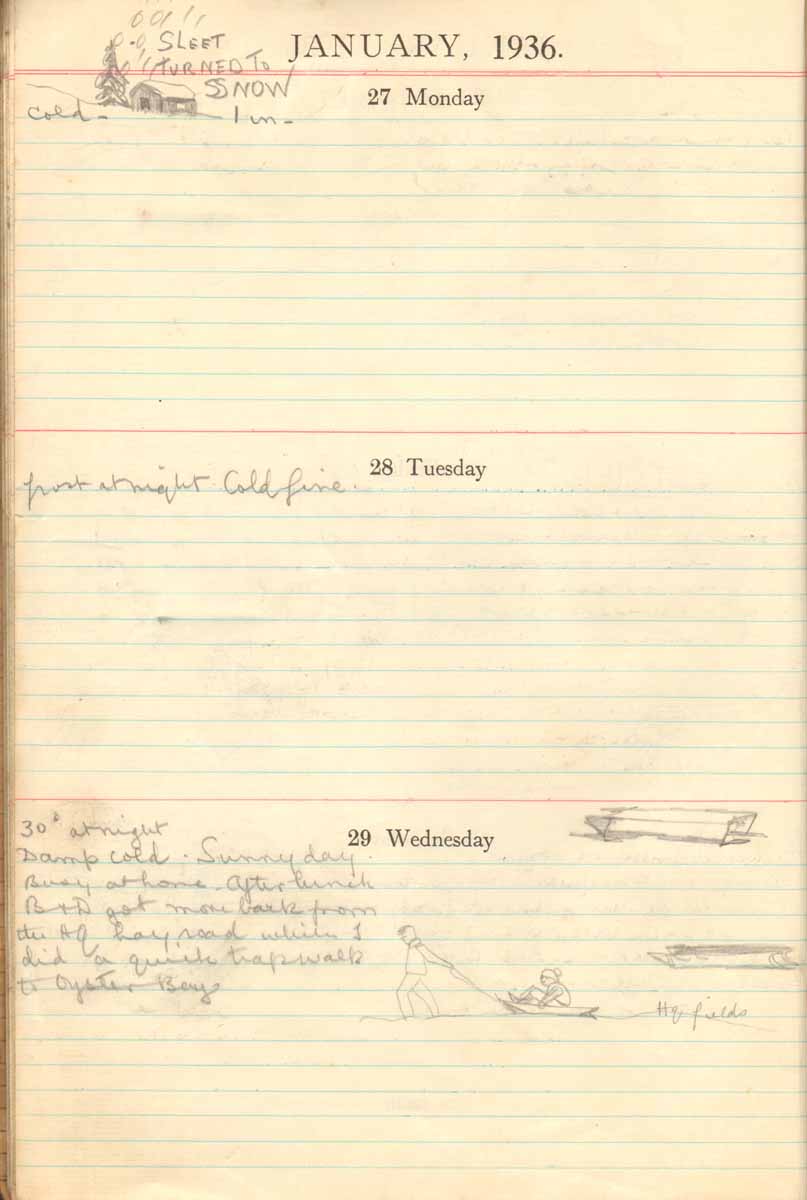 JANUARY, 1936.
SLEET
TURNED TO
SNOW
27 Monday
Cold - 1 in -
28 Tuesday
frost at night Cold fine.
29 Wednesday
30° at night
Damp cold. Sunny day.
Busy at home. After lunch
B+D got more bark from
the HQ hay road while I
did a quick trap walk
to Oyster Bay
HQ fields